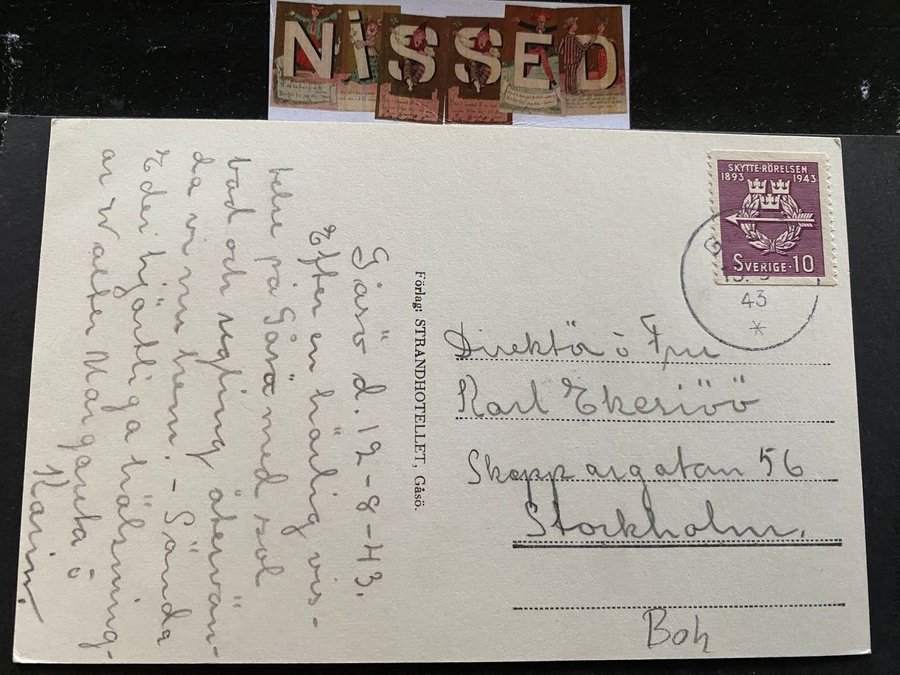 NiSSED
SKYTTE-RÖRELSEN
1893 1943
SVERIGE·10
43
Gåsö d. 12-8-43.
Efter en härlig vis-
telse på Gåsö med sol
bad och segling återvän-
da vi nu hem. - Sända
Eder hjärtliga hälsning-
ar Walter Margareta o
Karin.
Förlag: STRANDHOTELLET, Gåsö.
Direktör o Fru
Karl Ekeriöö
Skeppargatan 56
Stockholm.
Boh